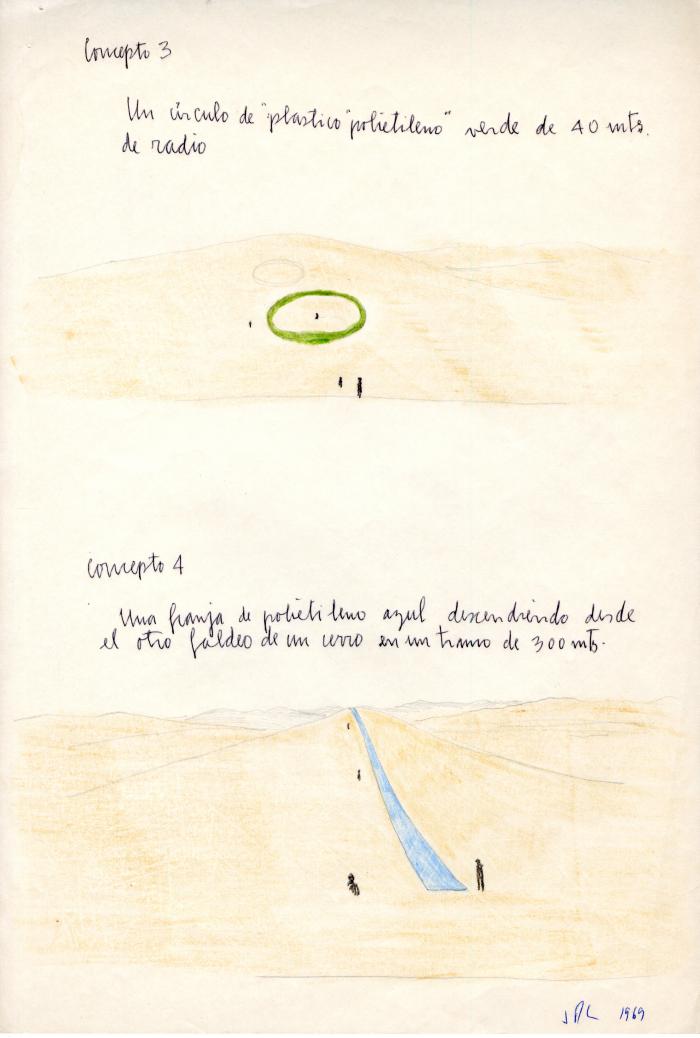 Concepto 3
Un círculo de "plastico "polietileno" verde de 40 mts.
de radio
Concepto 4
Una franja de polietileno azul descendiendo desde
el otro faldeo de un cerro en un tramo de 300 mts.
1969